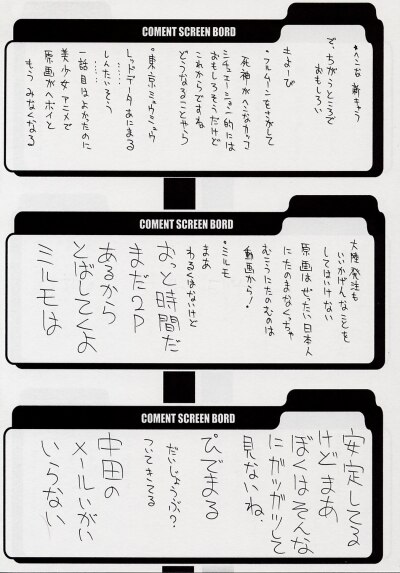 COMENT SCREEN BORD
・ヘンな新きょう
で、ちがうところで
おもしろい
土よーび
・フルムーンをさがして
死神がへンなカッコ
シチュエーション的には
おもしろそうだけど
これからですね
どうなることやら
・東京ミュウミュウ
レッドデータあにまる
しんたいそう
一話目はよかったのに
美少女アニメで
原画がヘボイと
もうみなくなる
COMENT SCREEN BORD
大陸発注も
いいかげんなことを
してはいけない
原画はぜったい日本人
にたのまなくっちゃ
むこうにたのむのは
動画から!
・ミルモ
まあ
わるくはないけど
おっと時間だ
まだ2P
あるから
とばしてくよ
ミルモは
COMENT SCREEN BORD
安定してる
けどまあ
ぼくはそんな
にガッガッして
見ないね、
ぴでまる
だいじょうぶ?
ついてきてる
中田の
メールいがい
いらない